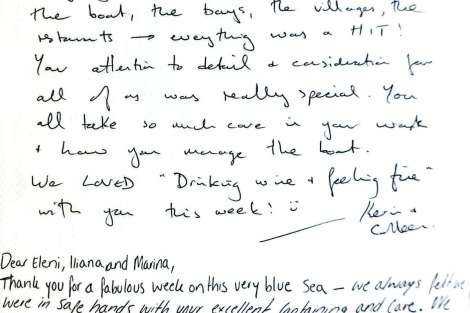 the boat, the bays, the villages, the
restaurants → everything was a HIT!
Your attention to detail + consideration for
all of us was really special. You
all take so much care in your work
+ how you manage the boat.
We LOVED "Drinking wine + feeling fine"
with you this week! ü
Kevin +
Colleen
Dear Eleni, Iliana and Marina,
Thank you for a fabulous week on this very blue sea – we always felt we
were in safe hands with your excellent captaining and care. We